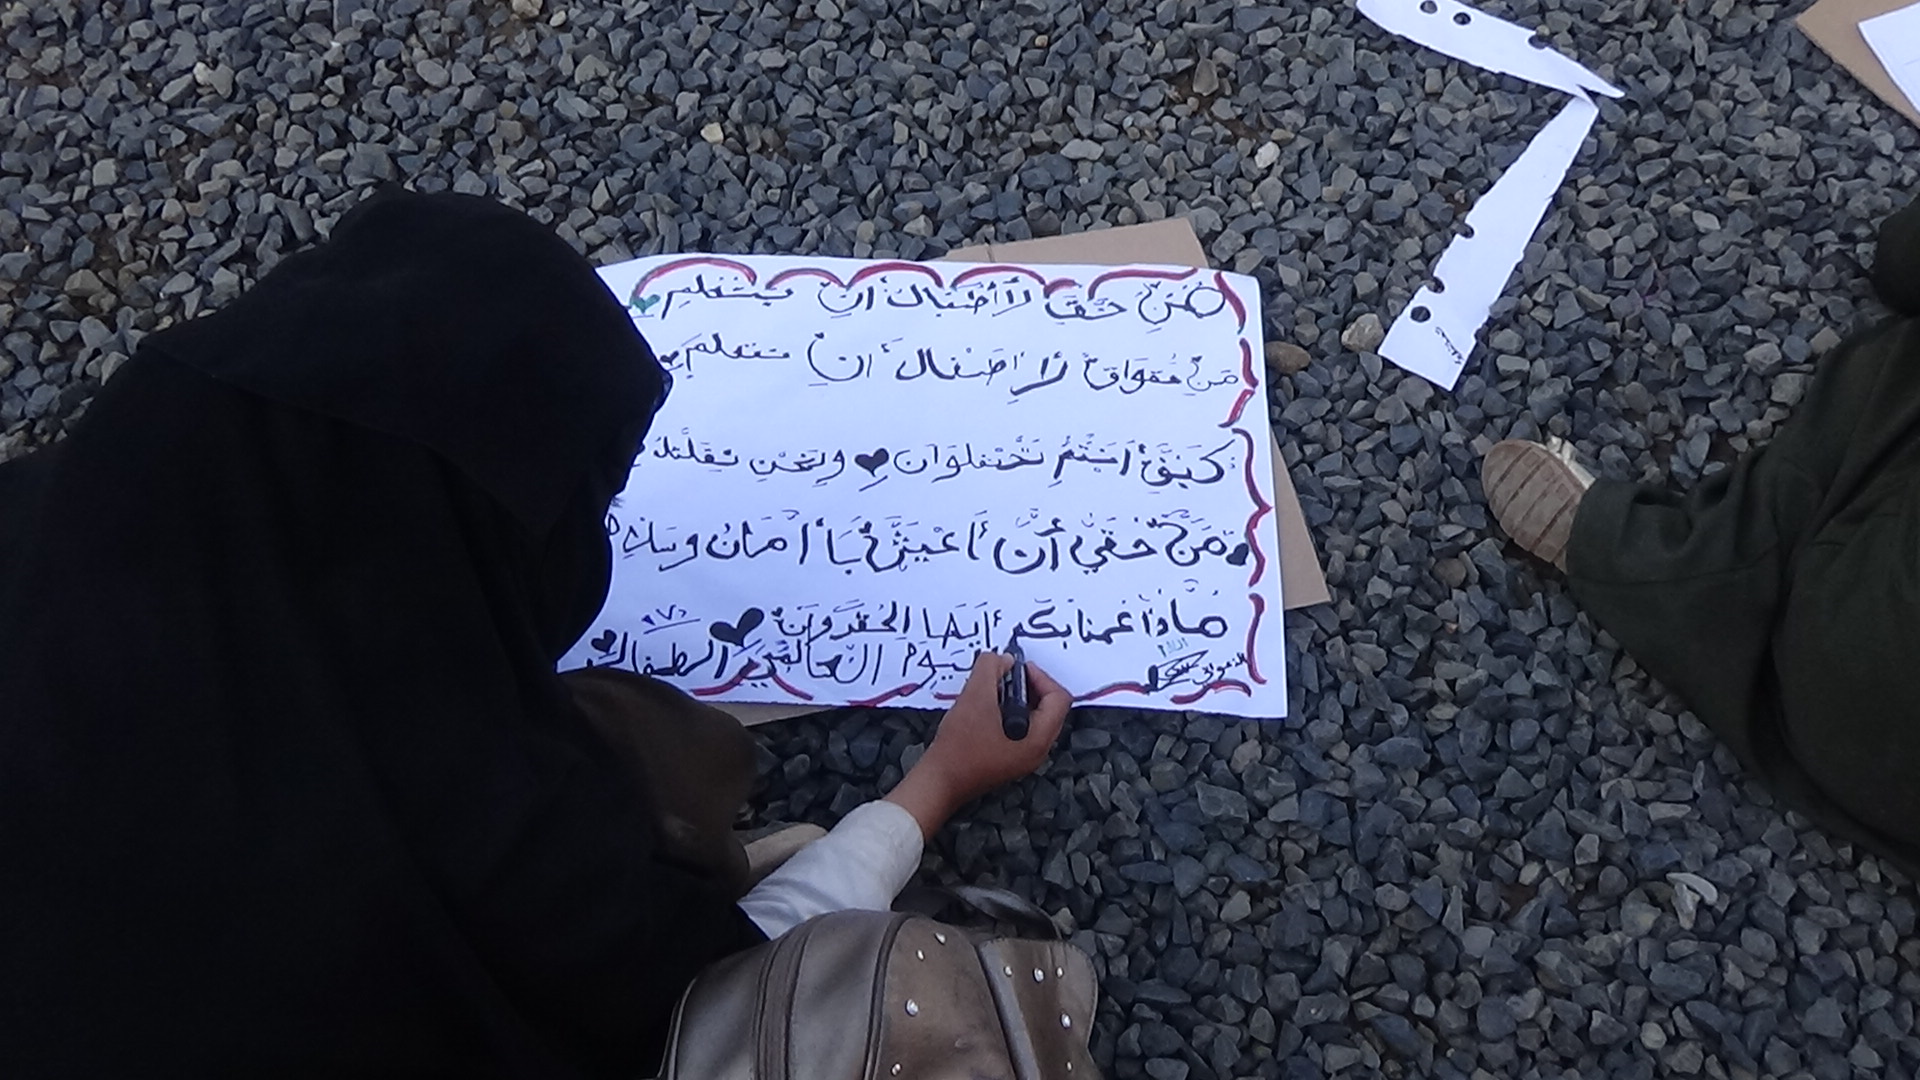 من حق لأ أطفال أن يتعلم
من حقواق لا اطفال أن تتعلم
كيف أنتم تحتفلوان ونحن
من حقي أن أعيش بأ أمان
ماذا عنابكم أيها الحقدون
اليوم العالمي الطفال